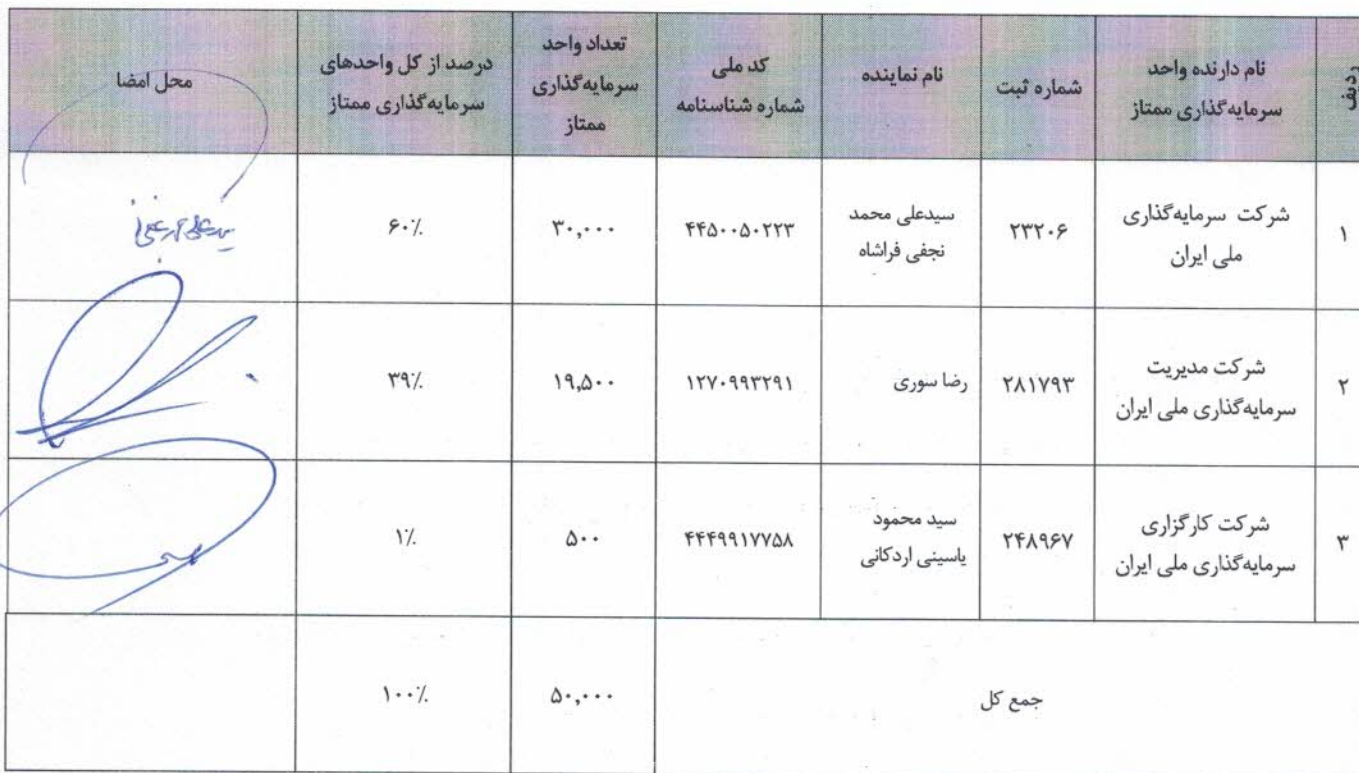 ردیف
نام دارنده واحد
سرمایه‌گذاری ممتاز
شماره ثبت
نام نماینده
کد ملی
شماره شناسنامه
تعداد واحد
سرمایه‌گذاری
ممتاز
درصد از کل واحدهای
سرمایه‌گذاری ممتاز
محل امضا
۱
شرکت سرمایه‌گذاری
ملی ایران
۲۳۲۰۶
سیدعلی محمد
نجفی فراشاه
۴۴۵۰۰۵۰۲۲۳
۳۰,۰۰۰
۶۰٪
۲
شرکت مدیریت
سرمایه‌گذاری ملی ایران
۲۸۱۷۹۳
رضا سوری
۱۲۷۰۹۹۳۲۹۱
۱۹,۵۰۰
۳۹٪
۳
شرکت کارگزاری
سرمایه‌گذاری ملی ایران
۲۴۸۹۶۷
سید محمود
یاسینی اردکانی
۴۴۴۹۹۱۷۷۵۸
۵۰۰
۱٪
جمع کل
۵۰,۰۰۰
۱۰۰٪